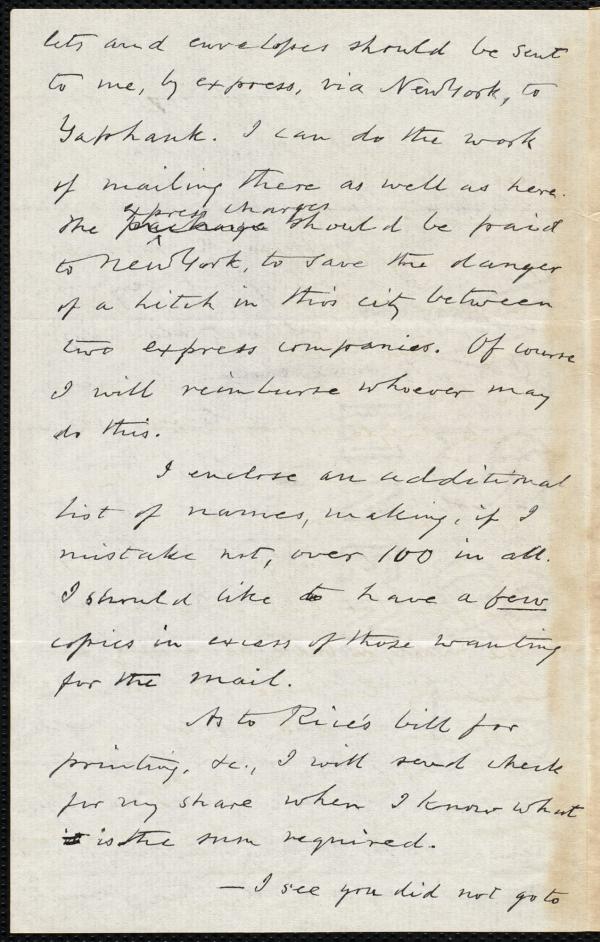 lets and envelopes should be sent
to me, by express, via New York, to
Yaphank. I can do the work
of mailing there as well as here.
express charges
The package should be paid
to New York, to save the danger
of a hitch in this city between
two express companies. Of course
I will reimburse whoever may
do this.
I enclose an additional
list of names, making, if I
mistake not, over 100 in all.
I should like to have a few
copies in excess of those wanting
for the mail.
As to Rice's bill for
printing, &c., I will send check
for my share when I know what
it is the sum required.
— I see you did not go to